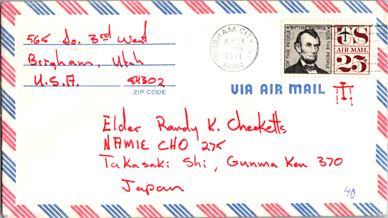 565 So. 3rd West
Brigham, Utah
U.S.A. 84302
ZIP CODE
BRIGHAM CITY
1971
84302
OF THE PEOPLE
BY THE PEOPLE
FOR THE PEOPLE
US
AIR MAIL
25¢
VIA AIR MAIL
Elder Randy K. Checketts
NAMIE CHO 275
Takasaki Shi, Gunma Ken 370
Japan
40